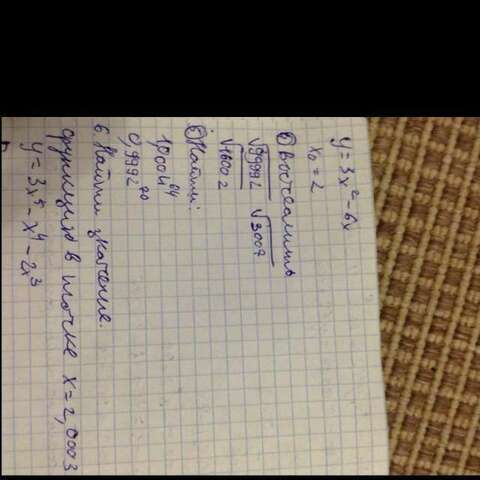 y = 3x² - 6x
x₀ = 2
④ Вычислить
√99992 √3007
√1600 2
⑤ Найти:
1,0004⁶⁴
0,9992²⁰
6. Найти значение
функции в точке x = 2,0003
y = 3x⁵ - x⁴ - 2x³